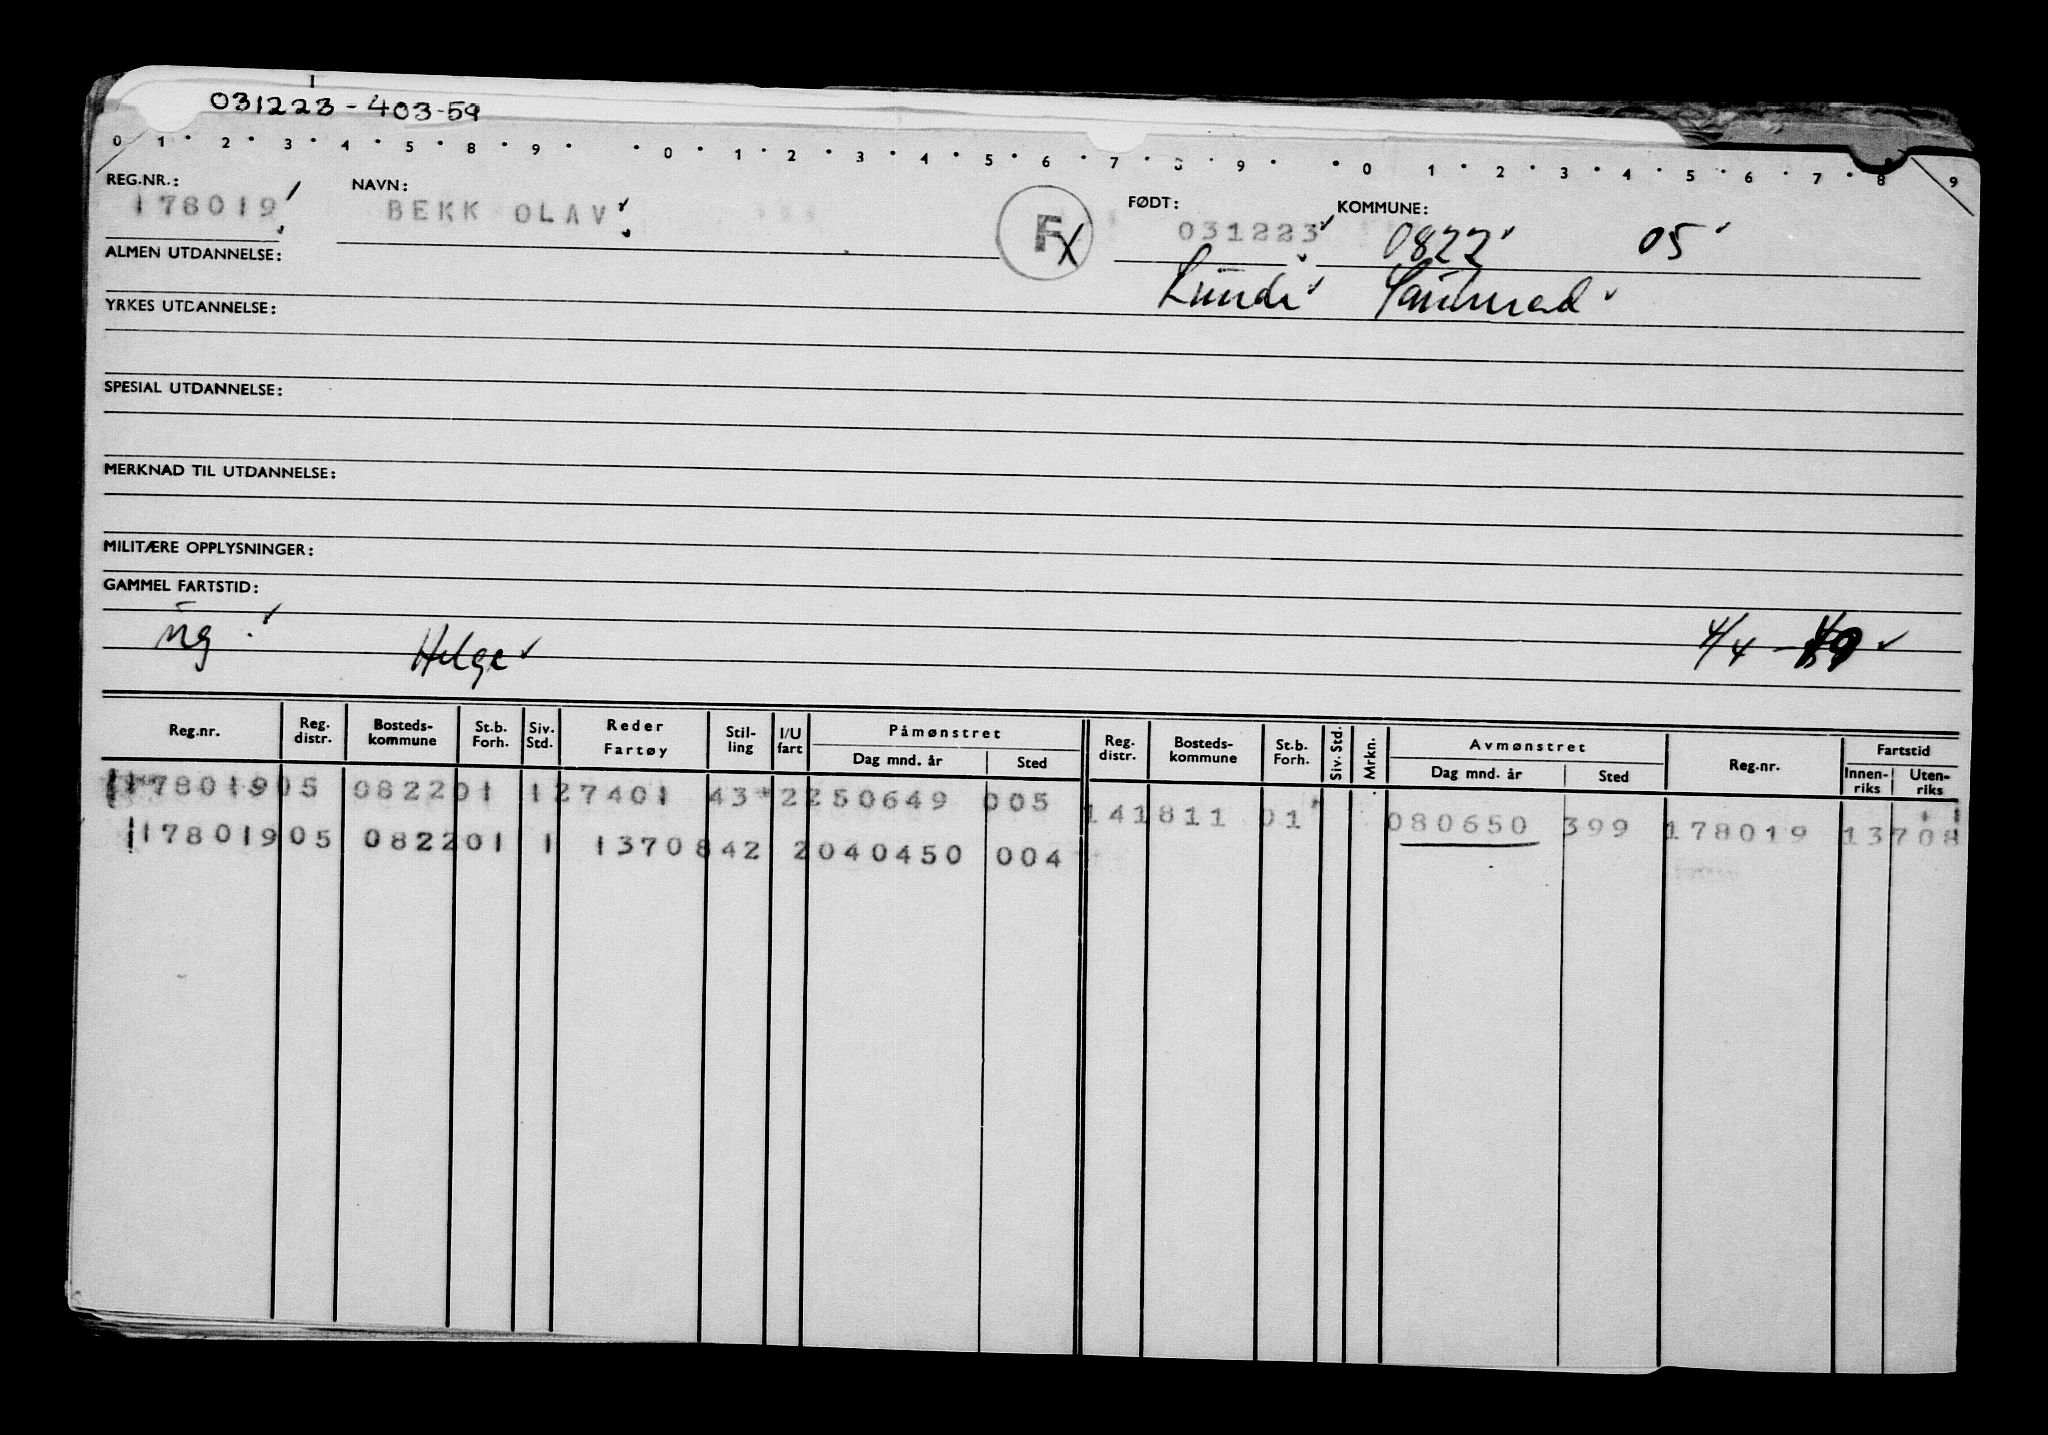 031223-403-59
0 1 2 3 4 5 8 9 0 1 2 3 4 5 6 7 8 9 0 1 2 3 4 5 6 7 8 9
REG.NR.: NAVN: FØDT: KOMMUNE:
178019 BEKK OLAV F X 031223 0822 05
ALMEN UTDANNELSE: Lunde
YRKES UTDANNELSE:
SPESIAL UTDANNELSE:
MERKNAD TIL UTDANNELSE:
MILITÆRE OPPLYSNINGER:
GAMMEL FARTSTID:
ug Helge 4/4 -
Reg.nr. Reg. distr. Bosteds-kommune St.b. Forh. Siv. Std. Reder Fartøy Stil-ling I/U fart Påmønstret Dag mnd. år Sted Reg. distr. Bosteds-kommune St.b. Forh. Siv. Std. Mrkn. Avmønstret Dag mnd. år Sted Reg.nr. Fartstid Innen-riks Uten-riks
178019 05 0822 01 1 27401 43 2 250649 005 14 1811 01 080650 399 178019 13708
178019 05 0822 01 1 13708 42 2 040450 004